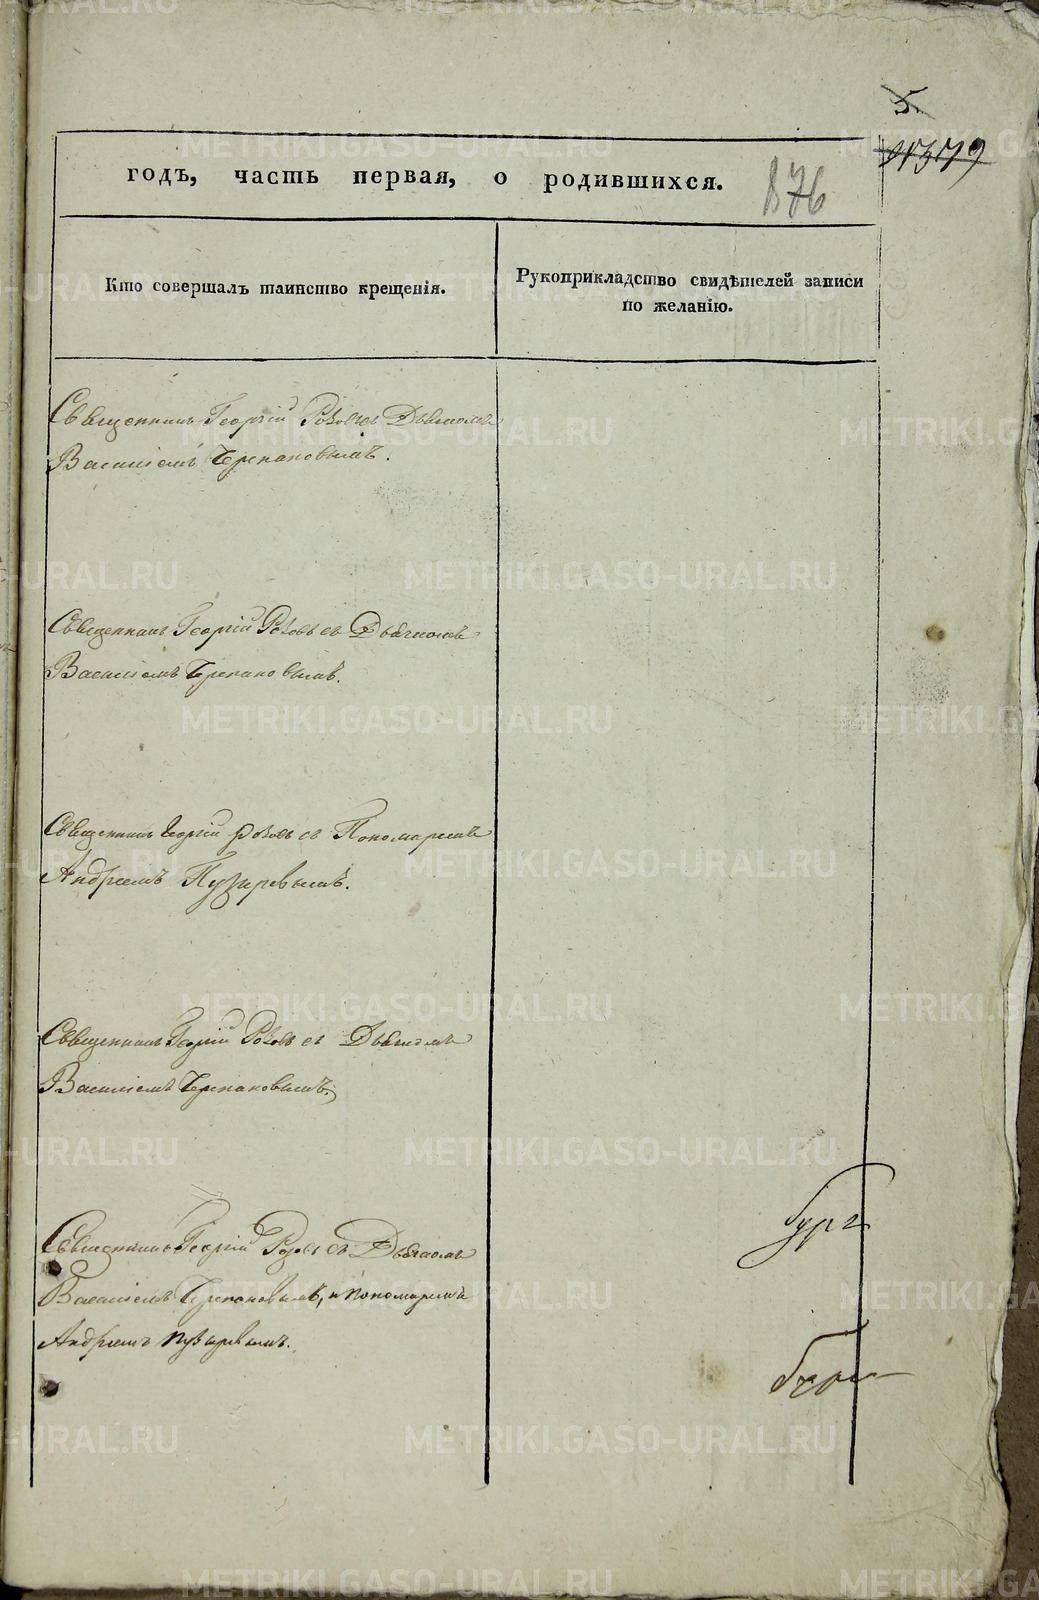 5.
годъ, часть первая, о родившихся.
876
Кто совершалъ таинство крещенія.
Рукоприкладство свидѣтелей записи
по желанію.
Священникъ Георгій Розовъ съ Дьячкомъ
Василіемъ Черпановымъ.
Священникъ Георгій Розовъ съ Дьячкомъ
Василіемъ Черпановымъ.
Священникъ Георгій Розовъ съ Пономаремъ
Андреемъ Пузыревымъ.
Священникъ Георгій Розовъ съ Дьячкомъ
Василіемъ Черпановымъ.
Священникъ Георгій Розовъ съ Дьячкомъ
Василіемъ Черпановымъ, и пономаремъ
Андреемъ Пузыревымъ.
METRIKI.GASO-URAL.RU